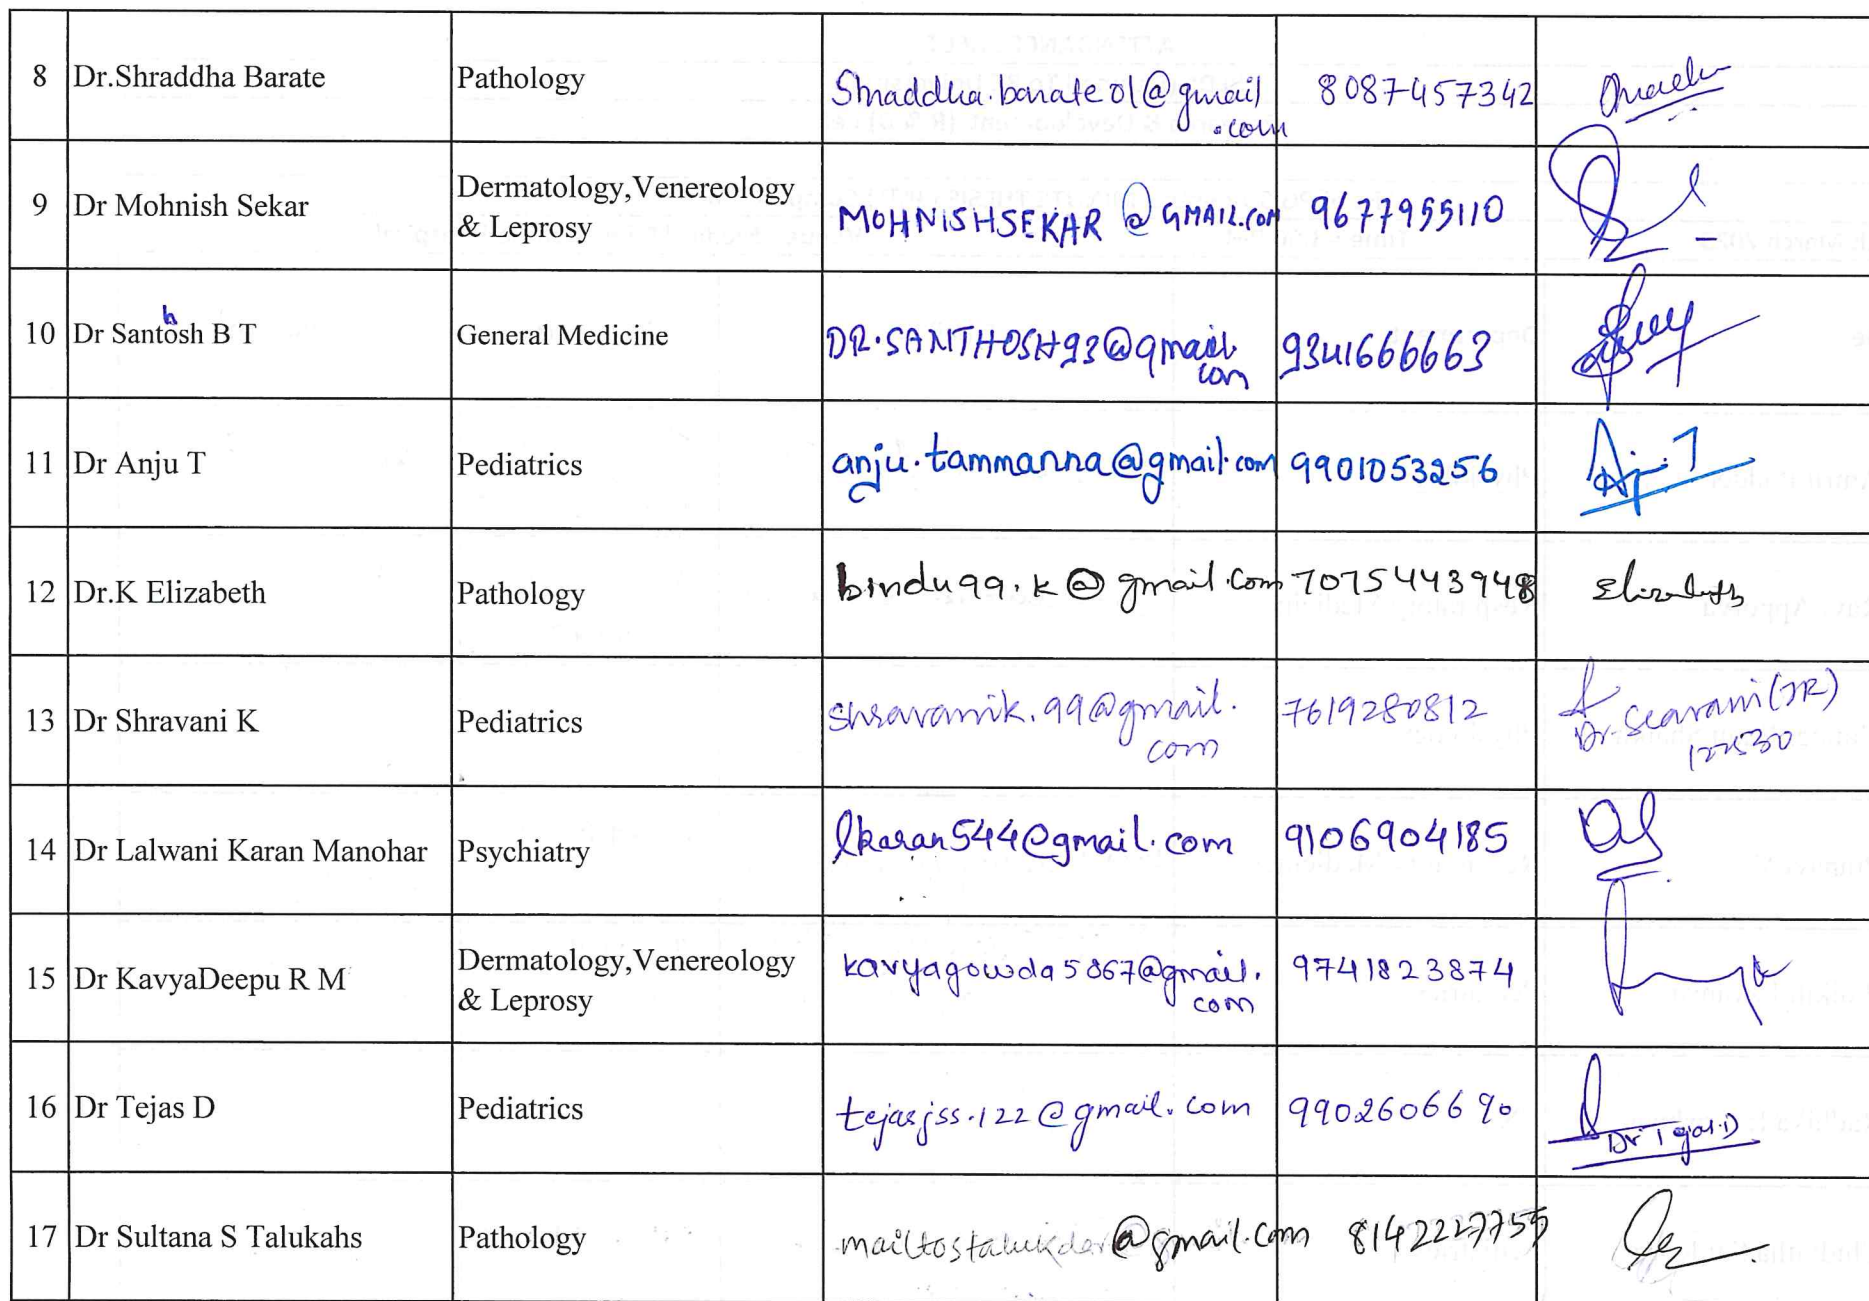 8 Dr.Shraddha Barate Pathology Shraddha.barate01@gmail.com 8087457342
9 Dr Mohnish Sekar Dermatology,Venereology & Leprosy MOHNISHSEKAR@GMAIL.COM 9677955110
10 Dr Santhosh B T General Medicine DR.SANTHOSH93@gmail.com 9341666663
11 Dr Anju T Pediatrics anju.tammanna@gmail.com 9901053256 Aj.T
12 Dr.K Elizabeth Pathology bindu99.k@gmail.com 7075443948 Elizabeth
13 Dr Shravani K Pediatrics shravanik.99@gmail.com 7619280812 Dr. (JR)
14 Dr Lalwani Karan Manohar Psychiatry lkaran544@gmail.com 9106904185
15 Dr KavyaDeepu R M Dermatology,Venereology & Leprosy kavyagowda5867@gmail.com 9741823874
16 Dr Tejas D Pediatrics tejasjss.122@gmail.com 9902606690 Dr Tejas.D
17 Dr Sultana S Talukahs Pathology mailtostalukdar@gmail.com 8142227755